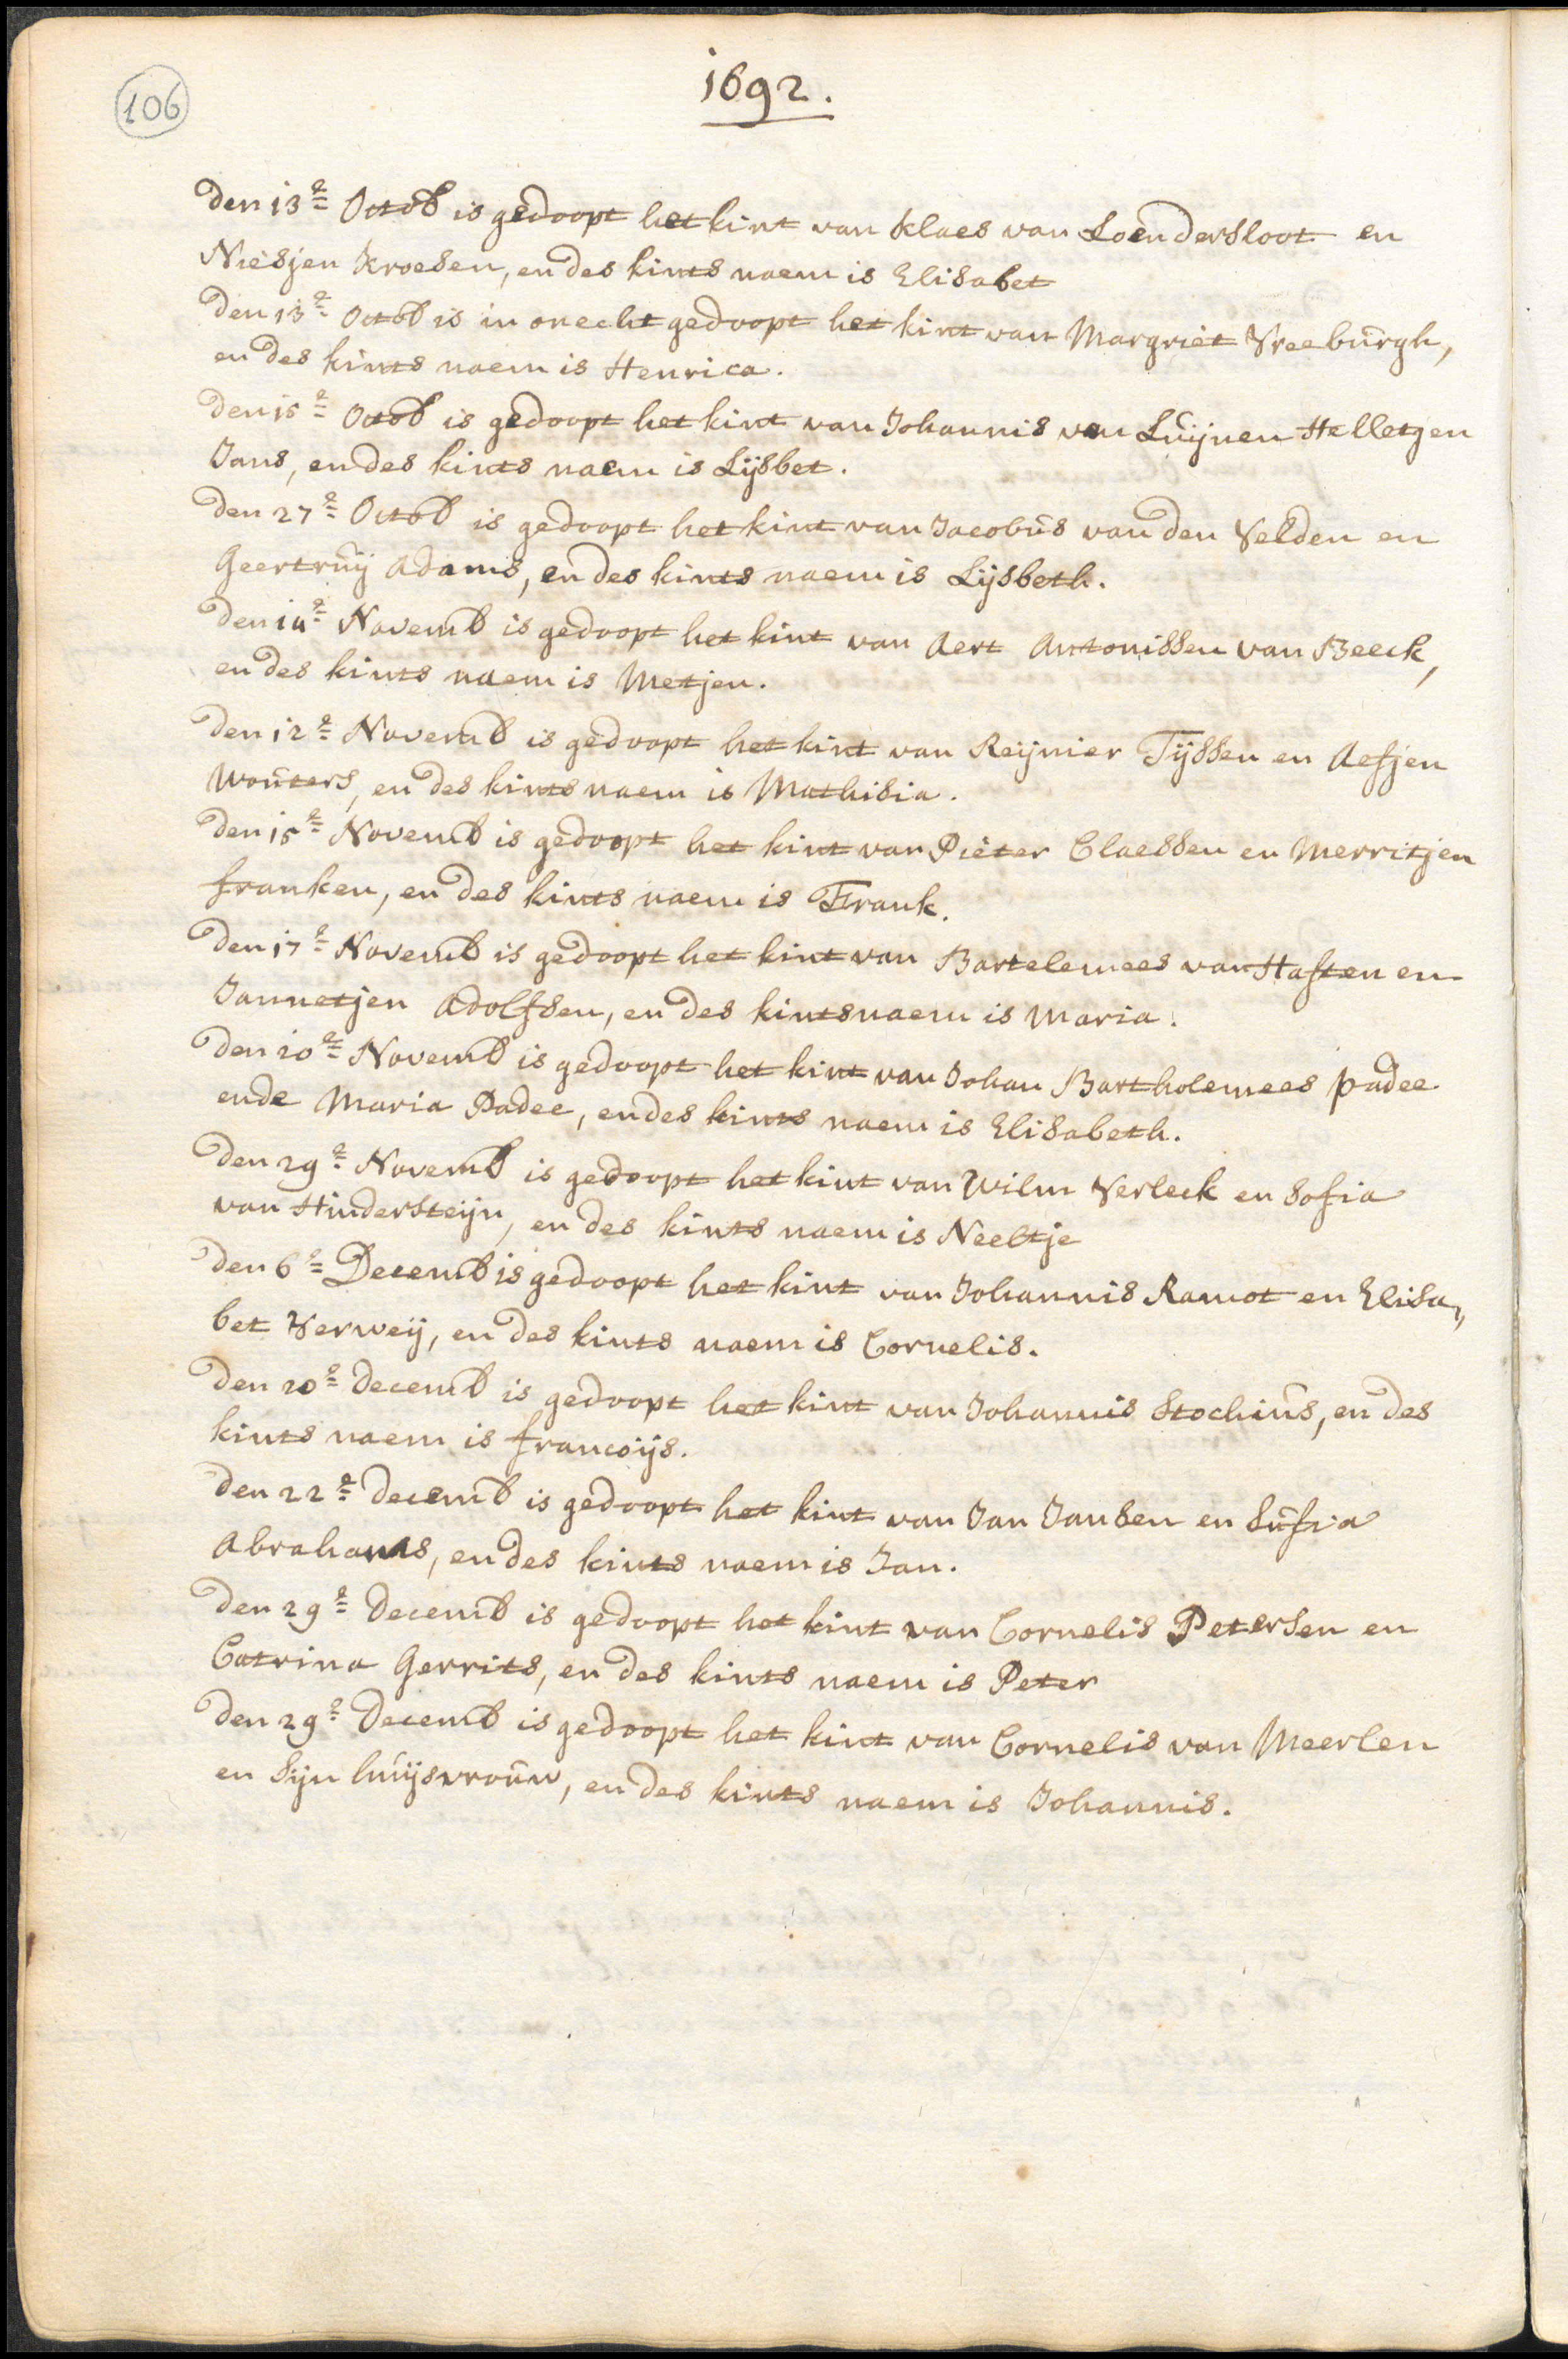 106
1692.
Den 13e Octob is gedoopt het kint van Klaes van Loendersloot en
Niesjen Kroesen, en des kints naem is Elisabet
Den 13e Octob is in onecht gedoopt het kint van Margriet Vreeburgh,
en des kints naem is Henrica.
Den 15e Octob is gedoopt het kint van Johannis van Luijnen Helletgen
Jans, en des kints naem is Lijsbet.
Den 27e Octob is gedoopt het kint van Jacobus van den Velden en
Geertruij Adams, en des kints naem is Lijsbeth.
Den Novemb is gedoopt het kint van Aert Antonissen van Beeck,
en des kints naem is Metjen.
Den 12e Novemb is gedoopt het kint van Reijnier Tijssen en Aefjen
Wouters, en des kints naem is Mathisia.
Den 15e Novemb is gedoopt het kint van Pieter Claessen en Merritjen
franken, en des kints naem is Frank.
Den 17e Novemb is gedoopt het kint van Bartelemees van Haften en
Jannetjen Adolfsen, en des kints naem is Maria.
Den 20e Novemb is gedoopt het kint van Johan Bartholemees padee
ende Maria Padee, en des kints naem is Elisabeth.
Den 29e Novemb is gedoopt het kint van Wilm Verleck en Sofia
van Hindersteijn, en des kints naem is Neeltje
Den 6e Decemb is gedoopt het kint van Johannis Ramot en Elisa,,
bet Verweij, en des kints naem is Cornelis.
Den 20e Decemb is gedoopt het kint van Johannis Stochius, en des
kints naem is francoijs.
Den 22e decemb is gedoopt het kint van Jan Jansen en Sufia
Abrahams, en des kints naem is Jan.
Den 29e Decemb is gedoopt het kint van Cornelis Petersen en
Catrina Gerrits, en des kints naem is Peter
Den 29e Decemb is gedoopt het kint van Cornelis van Meerlen
en Sijn huijsvrouw, en des kints naem is Johannis.